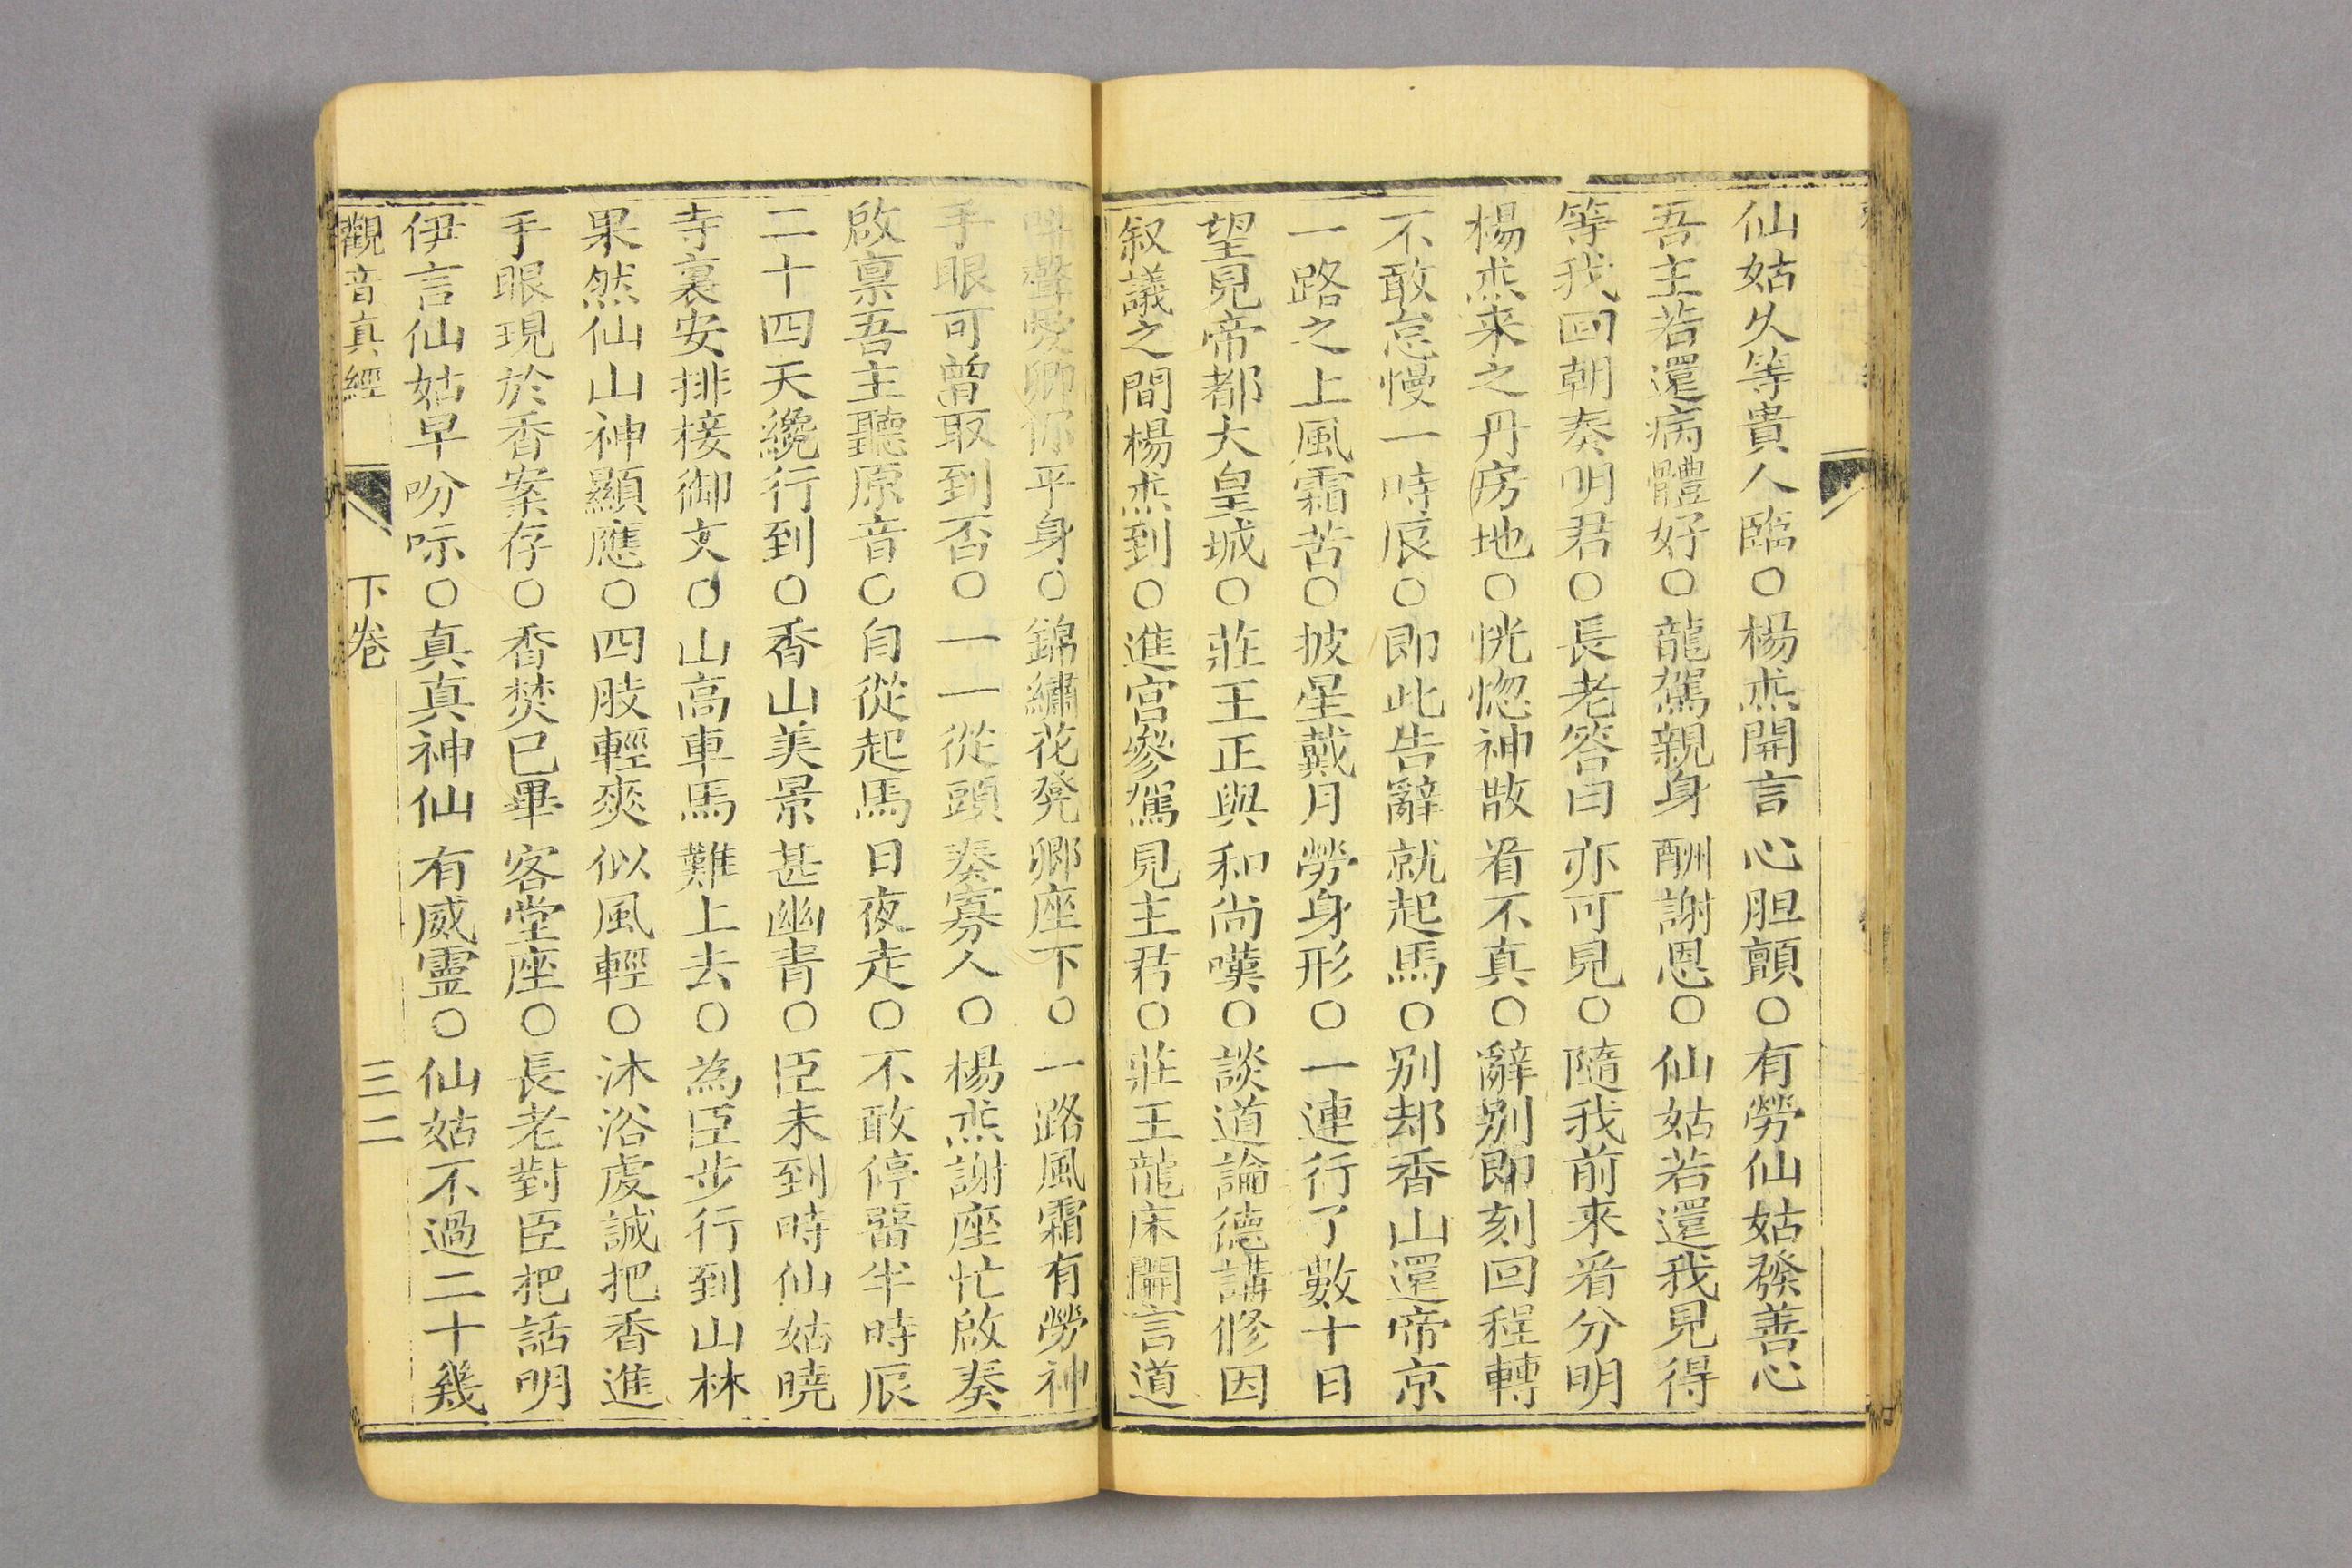 仙姑久等貴人臨〇楊杰開言心胆顫〇有勞仙姑發善心
吾主若還病體好〇龍駕親身酬謝恩〇仙姑若還我見得
等我回朝奏明君〇長老答曰亦可見〇隨我前來看分明
楊杰来之丹房地〇恍惚神散看不真〇辭别即刻回程轉
不敢怠慢一時辰〇即此告辭就起馬〇别却香山還帝京
一路之上風霜苦〇披星戴月勞身形〇一連行了數十日
望見帝都大皇城〇莊王正與和尚嘆〇談道論德講修因
叙議之間楊杰到〇進宮參駕見主君〇莊王龍床開言道
聲愛卿你平身〇錦繡花凳卿座下〇一路風霜有勞神
手眼可曾取到否〇一一從頭奏寡人〇楊杰謝座忙啟奏
啟禀吾主聽原音〇自從起馬日夜走〇不敢停畱半時辰
二十四天纔行到〇香山美景甚幽青〇臣未到時仙姑曉
寺裏安排接御文〇山高車馬難上去〇為臣步行到山林
果然仙山神顯應〇四肢輕爽似風輕〇沐浴虔誠把香進
手眼現於香案存〇香焚已畢客堂座〇長老對臣把話明
伊言仙姑早吩咐〇真真神仙有威靈〇仙姑不過二十幾
觀音真經 下卷 三二